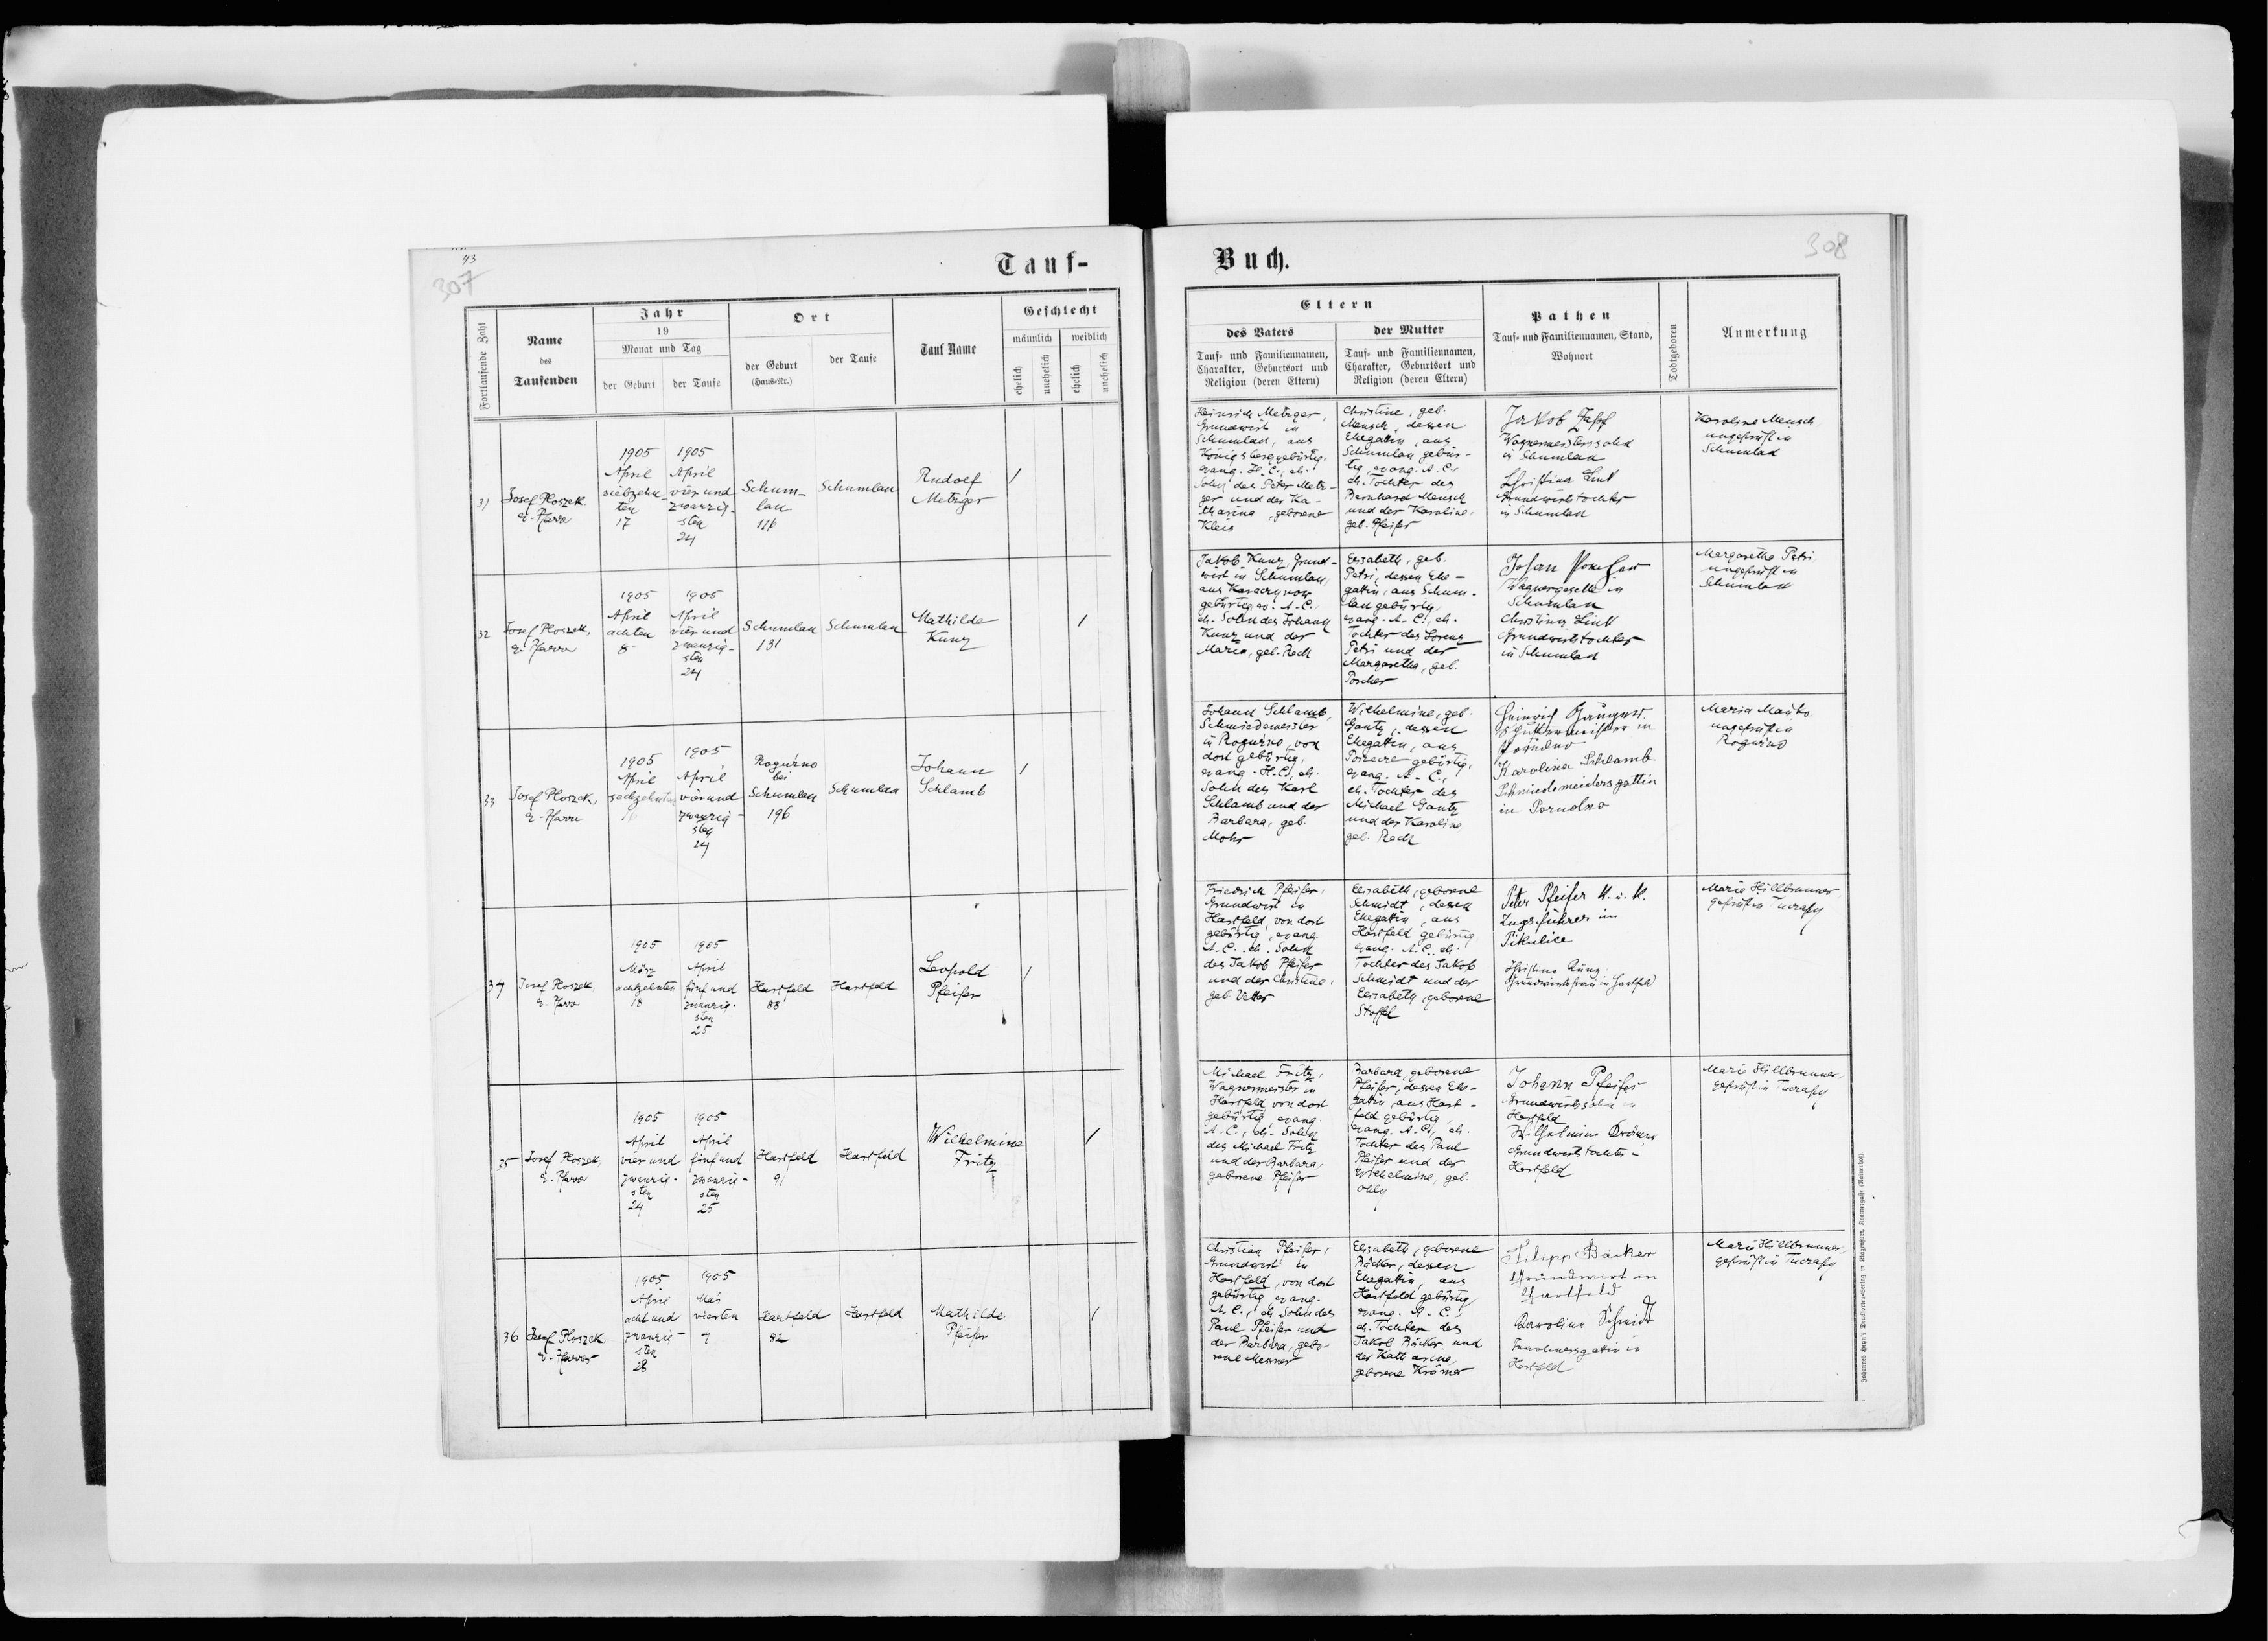 43
307
Tauf-
Fortlaufende Zahl
Name
des
Taufenden
Jahr
19
Monat und Tag
der Geburt
der Taufe
Ort
der Geburt
(Haus-Nr.)
der Taufe
Tauf Name
Geschlecht
männlich
weiblich
ehelich
unehelich
ehelich
unehelich
31
Josef Ploszek
e. Pfarrer
1905
April
siebzehn-
ten
17
1905
April
vier und
zwanzig-
sten
24
Schum-
lau
116
Schumlau
Rudolf
Metzger
/
32
Josef Ploszek,
e. Pfarrer
1905
April
achten
8
1905
April
vier und
zwanzig-
sten
24
Schumlau
131
Schumlau
Mathilde
Kunz
/
33
Josef Ploszek,
e. Pfarrer
1905
April
sechzehnten
16
1905
April
vier und
zwanzig-
sten
24
Rogużno
bei
Schumlau
196
Schumlau
Johann
Schlamb
/
34
Josef Ploszek
e. Pfarrer
1905
März
achtzehnten
18
1905
April
fünf und
zwanzig-
sten
25
Hartfeld
88
Hartfeld
Leopold
Pfeifer
/
35
Josef Ploszek,
e. Pfarrer
1905
April
vier und
zwanzig-
sten
24
1905
April
fünf und
zwanzig-
sten
25
Hartfeld
91
Hartfeld
Wilhelmine
Fritz
/
36
Josef Ploszek
e. Pfarrer
1905
April
acht und
zwanzig-
sten
28
1905
Mai
vierten
4
Hartfeld
82
Hartfeld
Mathilde
Pfeifer
/
Buch.
308
Eltern
des Vaters
Tauf- und Familiennamen,
Charakter, Geburtsort und
Religion (deren Eltern)
der Mutter
Tauf- und Familiennamen,
Charakter, Geburtsort und
Religion (deren Eltern)
Pathen
Tauf- und Familiennamen, Stand,
Wohnort
Todtgeboren
Anmerkung
Heinrich Metzger,
Grundwirt in
Schumlau, aus
Königsberg gebürtig,
evang. H. C., eh.
Sohn des Peter Metz-
ger und der Ka-
tharina, geborene
Klein
Christine, geb.
Mensch, dessen
Ehegattin, aus
Schumlau gebür-
tig, evang. A. C.,
eh. Tochter des
Bernhard Mensch
und der Karoline,
geb. Pfeifer
Jakob Zapf
Wagnermeisterssohn
in Schumlau
Christina Link
Grundwirtstochter
in Schumlau
Karoline Mensch
ungeprüft in
Schumlau
Jakob Kunz, Grund-
wirt in Schumlau,
aus
gebürtig ev. A. C.,
eh. Sohn des Johann
Kunz und der
Maria, geb. Rech
Elisabeth, geb.
Petri, dessen Ehe-
gattin, aus Schum-
lau gebürtig,
evang. A. C., eh.
Tochter des Lorenz
Petri und der
Margaretha, geb.
Porcher
Johan
Wagnergeselle in
Schumlau
Christina Link
Grundwirtstochter
in Schumlau
Margaretha Petri
ungeprüft in
Schumlau
Johann Schlamb,
Schmiedemeister
in Rogużno, von
dort gebürtig,
evang. H. C., eh.
Sohn des Karl
Schlamb und der
Barbara, geb.
Mohr
Wilhelmine, geb.
Gantz, dessen
Ehegattin, aus
gebürtig,
evang. A. C.,
eh. Tochter des
Michael Gantz
und der Karoline
geb. Rech
Heinrich
in
Karolina Schlamb
Schmiedemeistersgattin
in
Maria
ungeprüft in
Rogużno
Friedrich Pfeifer,
Grundwirt in
Hartfeld, von dort
gebürtig, evang.
A. C., eh. Sohn
des Jakob Pfeifer
und der Christine,
geb. Vetter
Elisabeth, geborene
Schmidt, dessen
Ehegattin, aus
Hartfeld gebürtig
evang. A. C., eh.
Tochter des Jakob
Schmidt und der
Elisabeth, geborene
Stoffel
Peter Pfeifer k. u. k.
Zugsführer in
Pikulice
Christine Kunz
Grundwirtsfrau in Hartfeld
Marie Hillbrunner
geprüft in
Michael Fritz,
Wagnermeister in
Hartfeld, von dort
gebürtig evang.
A. C., eh. Sohn
des Michael Fritz
und der Barbara,
geborene Pfeifer
Barbara, geborene
Pfeifer, dessen Ehe-
gattin, aus Hart-
feld gebürtig
evang. A. C., eh.
Tochter des Paul
Pfeifer und der
Wilhelmine, geb.
Ohly
Johann Pfeifer
Grundwirtssohn in
Hartfeld
Wilhelmine Krämer
Grundwirtstochter
Hartfeld
Marie Hillbrunner,
geprüft in
Christian Pfeifer,
Grundwirt in
Hartfeld, von dort
gebürtig evang.
A. C., eh. Sohn des
Paul Pfeifer und
der Barbara, gebo-
rene Messner
Elisabeth, geborene
Bäcker, dessen
Ehegattin, aus
Hartfeld gebürtig
evang. A. C.,
eh. Tochter des
Jakob Bäcker und
der Katharina,
geborene Krämer
Filipp Bäcker
Grundwirt in
Hartfeld
Karoline Schmidt
in
Hartfeld
Marie Hillbrunner,
geprüft in